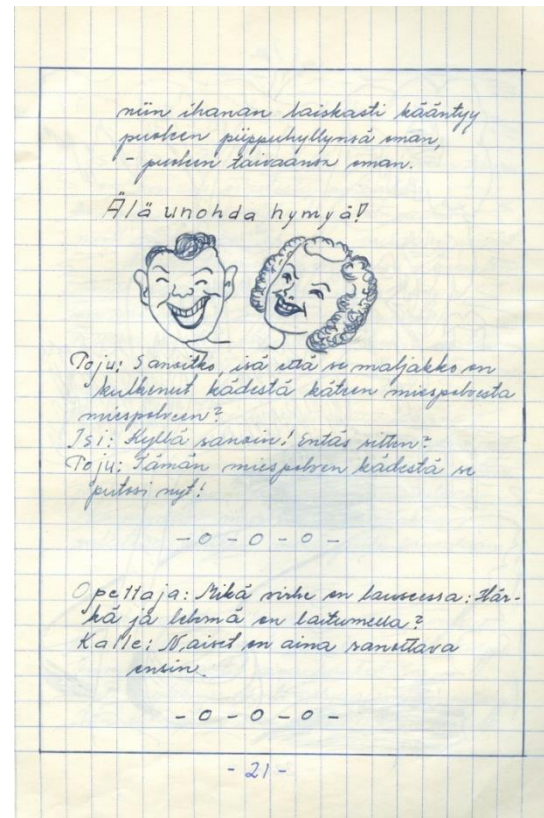 niin ihanan laiskasti kääntyy
puoleen piippuhyllynsä oman,
- puoleen taivaansa oman.
Älä unohda hymyä!
Poju: Sanoitko, isä että se maljakko on
kulkenut kädestä käteen miespolvesta
miespolveen?
Isi: Kyllä sanoin! Entäs sitten?
Poju: Tämän miespolven kädestä se
putosi nyt!
- o - o - o -
Opettaja: Mikä virhe on lauseessa: Här-
kä ja lehmä on laitumella?
Kalle: Naiset on aina sanottava
ensin.
- o - o - o -
- 21 -